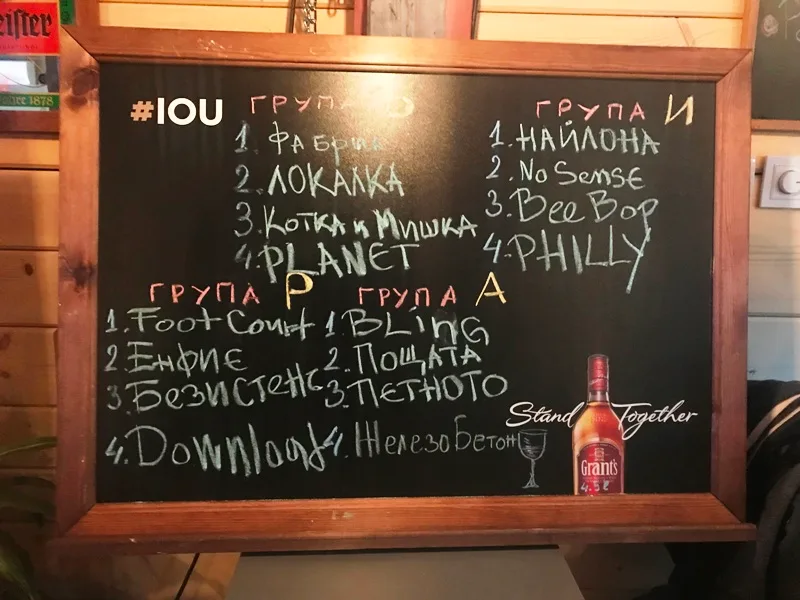 eister
SINCE 1878
#IOU
ГРУПА
1. Фабрик
2. ЛОКАЛКА
3. Котка и Мишка
4. PLANET
ГРУПА И
1. НАЙЛОНА
2. No Sense
3. Bee Bop
4. PHILLY
ГРУПА Р
1. Foot Court
2. Енфие
3. Безистенс
4. Download
ГРУПА А
1. BLing
2. Пощата
3. Петното
4. ЖелезоБетон
Stand Together
Grant's